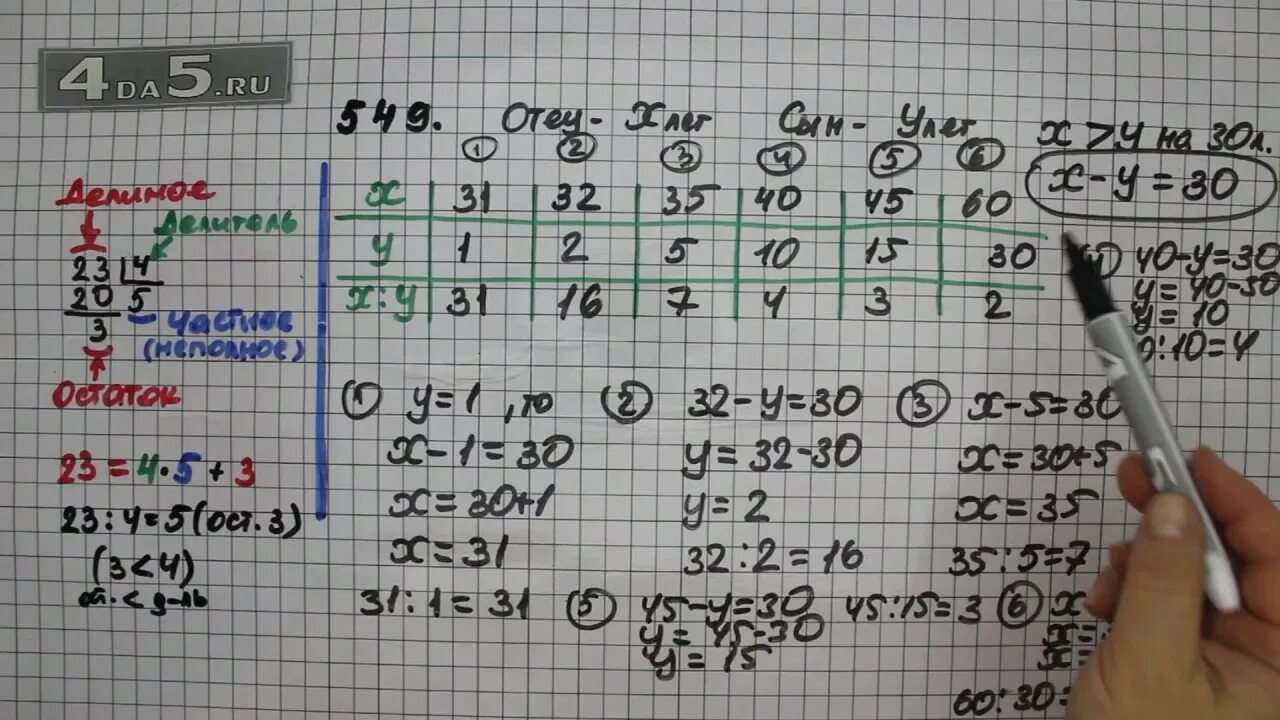 4DA5.RU
549. Отец - Х лет Сын - У лет
х > у на 30 л.
х - у = 30
① ② ③ ④ ⑤ ⑥
х 31 32 35 40 45 60
у 1 2 5 10 15 30
х : у 31 16 7 4 3 2
Делимое
Делитель
23 4
20 5
3
частное
(неполное)
Остаток
23 = 4 · 5 + 3
23 : 4 = 5 (ост. 3)
(3 < 4)
ост. < д-ль
① у = 1, то
х - 1 = 30
х = 30 + 1
х = 31
31 : 1 = 31
② 32 - у = 30
у = 32 - 30
у = 2
32 : 2 = 16
③ х - 5 = 30
х = 30 + 5
х = 35
35 : 5 = 7
40 - у = 30
у = 40 - 30
у = 10
: 10 = 4
⑤ 45 - у = 30
у = 45 - 30
у = 15
45 : 15 = 3
⑥ х
х =
х =
60 : 30 =